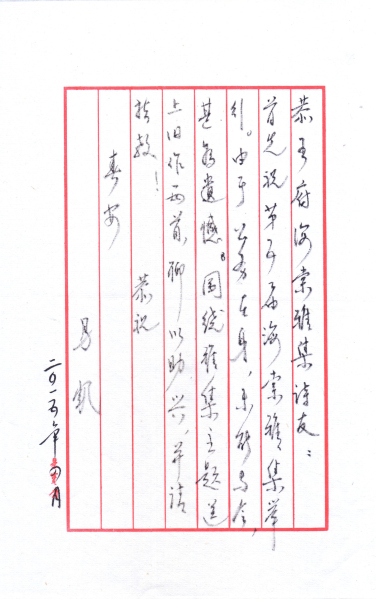 恭王府海棠雅集诗友：
首先祝第五届海棠雅集举
行。由于公务在身，未能与会，
甚为遗憾。围绕雅集主题送
上旧作两首，聊以助兴，并请
指教！ 恭祝
春安
易凯
二〇一五年四月